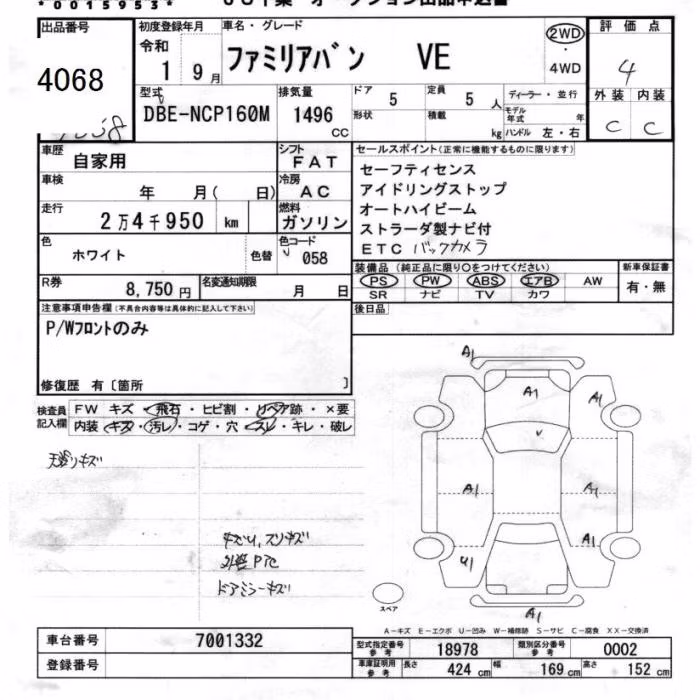 *0015953*
出品番号
4068
初度登録年月
令和
1 9月
車名・グレード
ファミリアバン VE
2WD
・
4WD
評価点
4
外装 内装
C C
型式
DBE-NCP160M
排気量
1496
CC
ドア 5
定員 5 人
形状
積載 kg
ディーラー・並行
モデル年式 年
ハンドル 左・右
車歴
自家用
シフト
FAT
車検
年 月( 日)
冷房
AC
走行
2万4千950 km
燃料
ガソリン
色
ホワイト
色替
色コード
058
R券
8,750円
名変通知期限
月 日
セールスポイント(正常に機能するものに限ります)
セーフティセンス
アイドリングストップ
オートハイビーム
ストラーダ製ナビ付
ETC バックカメラ
装備品 (純正品に限り○をつけてください)
PS PW ABS エアB AW
SR ナビ TV カワ
新車保証書
有・無
後日品
注意事項申告欄(不具合内容等は具体的に記入して下さい)
P/Wフロントのみ
修復歴 有〔箇所 〕
検査員
記入欄
FW キズ・飛石・ヒビ割・リペア跡・×要
内装・キズ・汚レ・コゲ・穴・スレ・キレ・破レ
天張りキズ
ドアミラーキズ
A1
A1
A1
A1
A1
A1
U1
A1
スペア
A1
A-キズ E-エクボ U-凹み W-補修跡 S-サビ C-腐食 XX-交換済
車台番号
7001332
登録番号
型式指定番号
参考
18978
類別区分番号
参考
0002
車庫証明用
参考
長さ 424 cm 幅 169 cm 高さ 152 cm